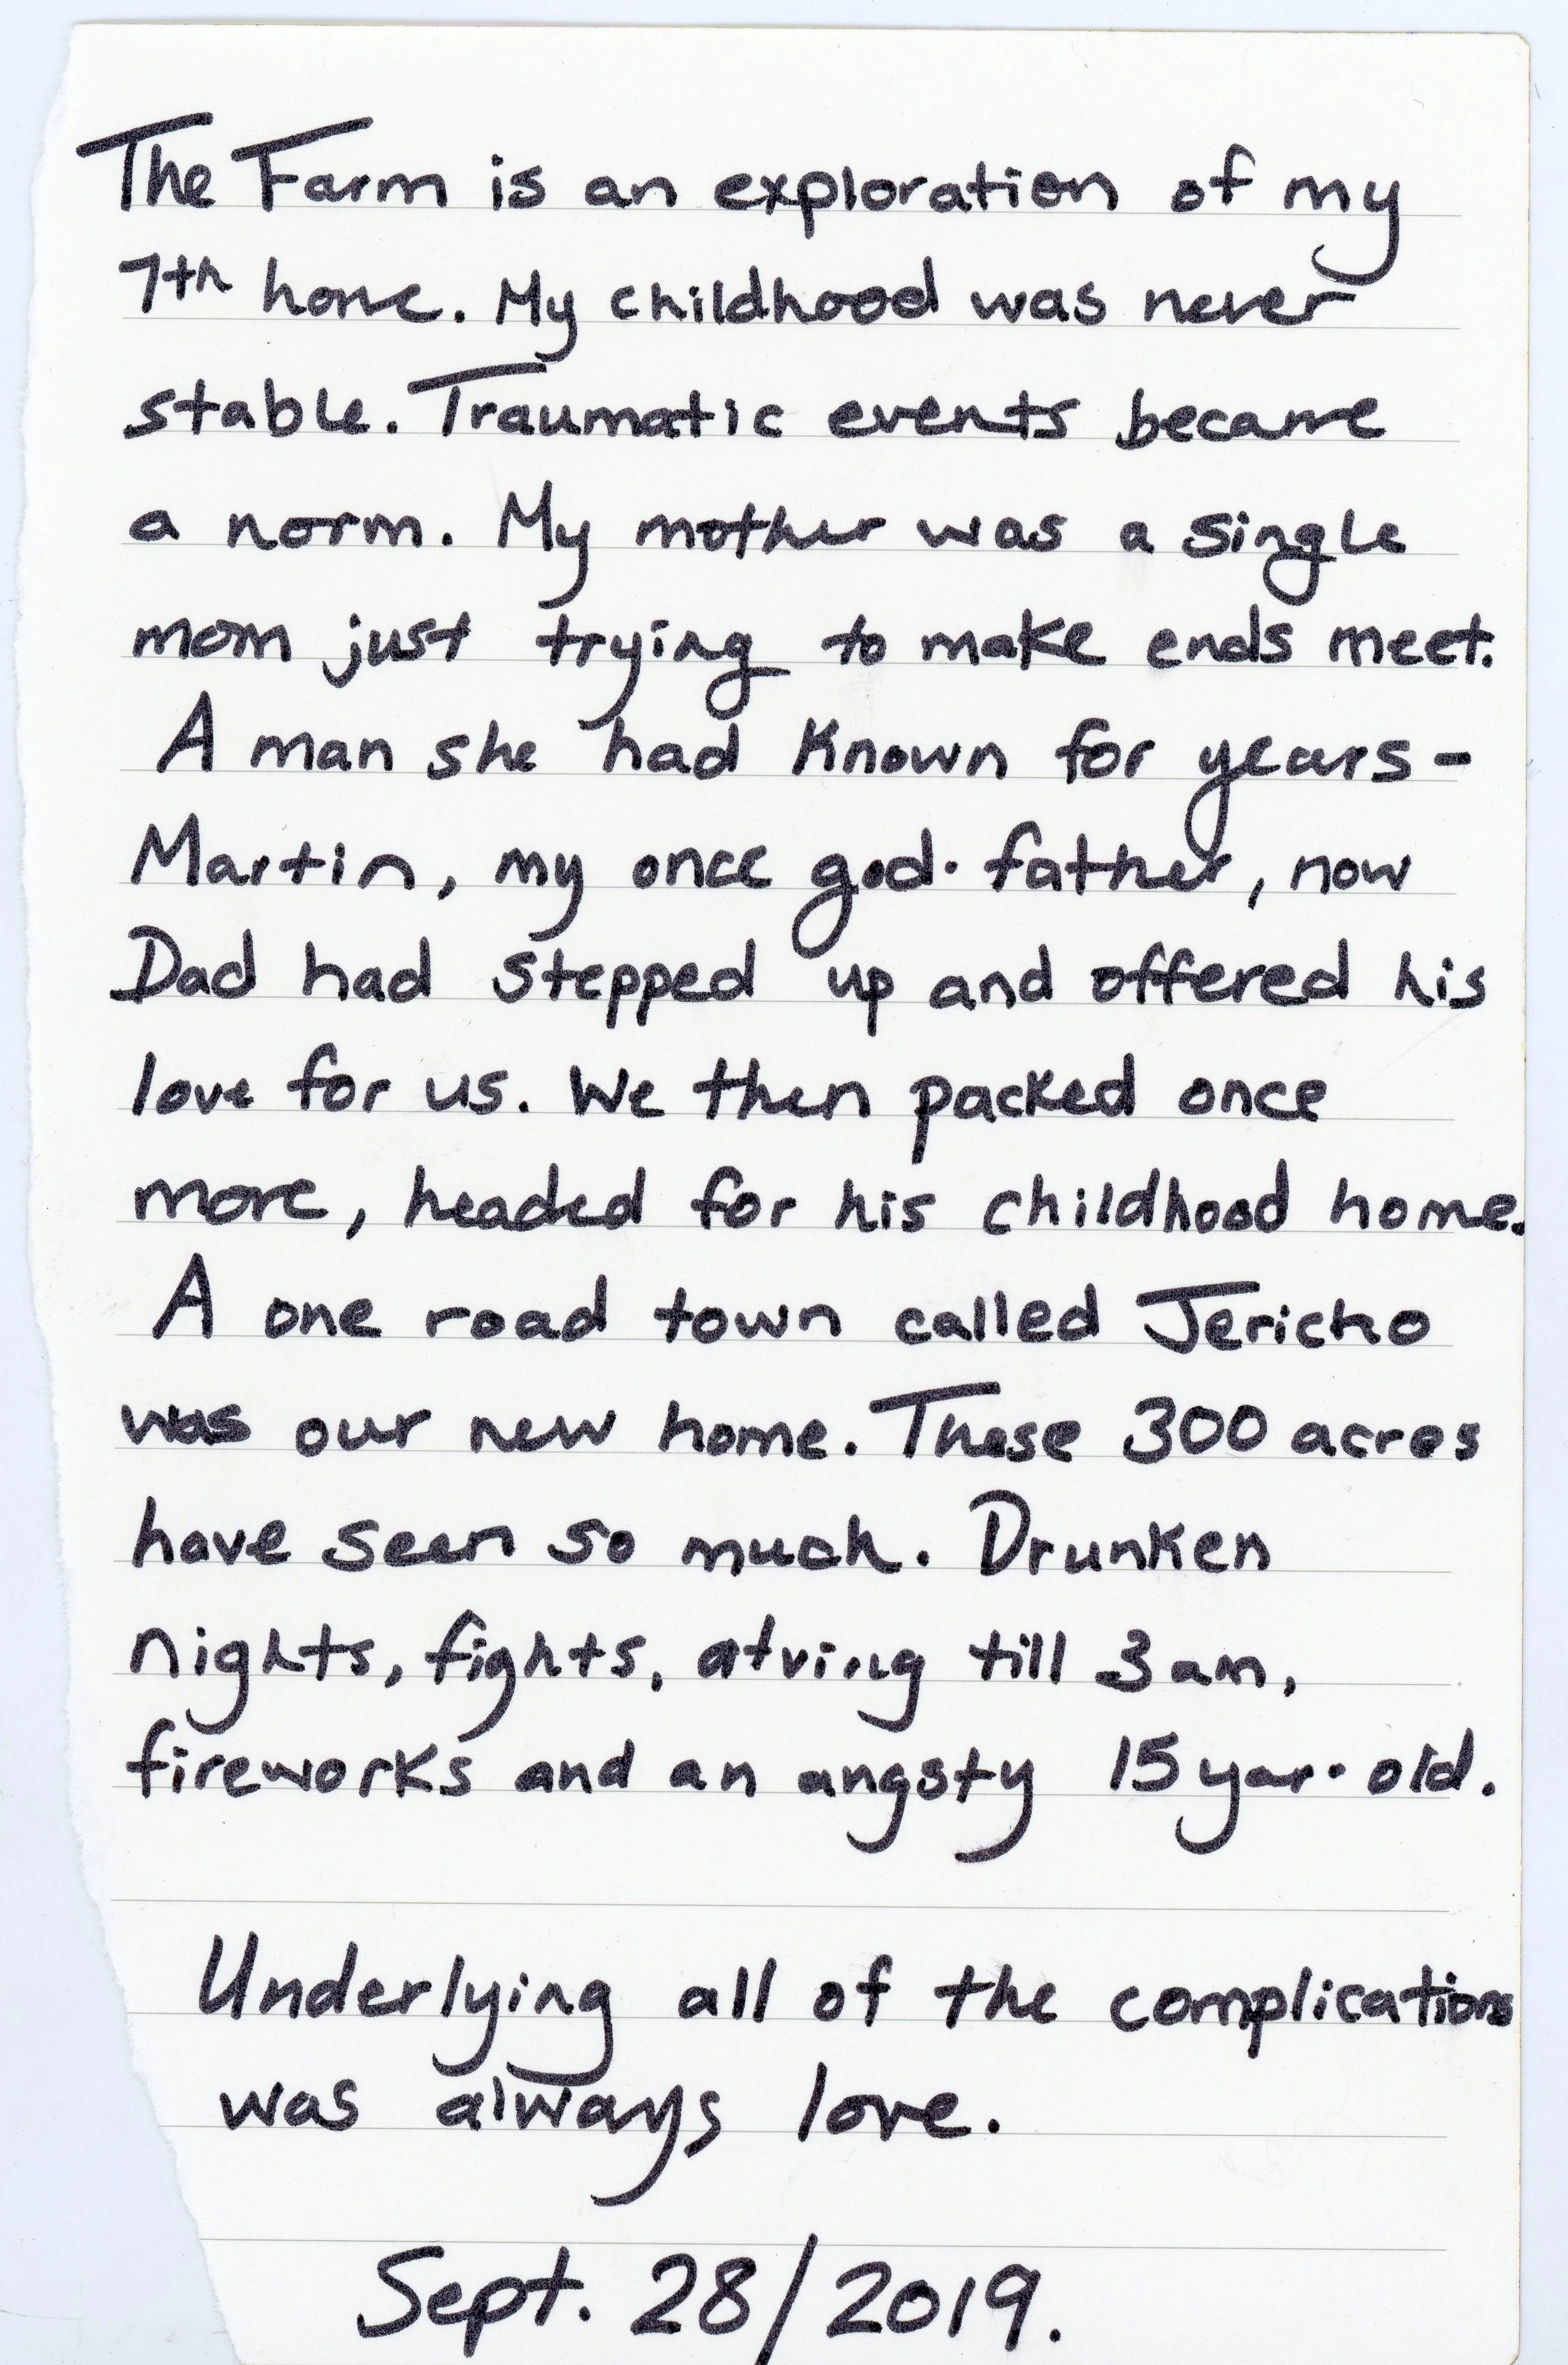 The Farm is an exploration of my
7th home. My childhood was never
stable. Traumatic events became
a norm. My mother was a single
mom just trying to make ends meet.
A man she had known for years -
Martin, my once god-father, now
Dad had stepped up and offered his
love for us. We then packed once
more, headed for his childhood home.
A one road town called Jericho
was our new home. These 300 acres
have seen so much. Drunken
nights, fights, atving till 3am,
fireworks and an angsty 15 year-old.
Underlying all of the complications
was always love.
Sept. 28/2019.